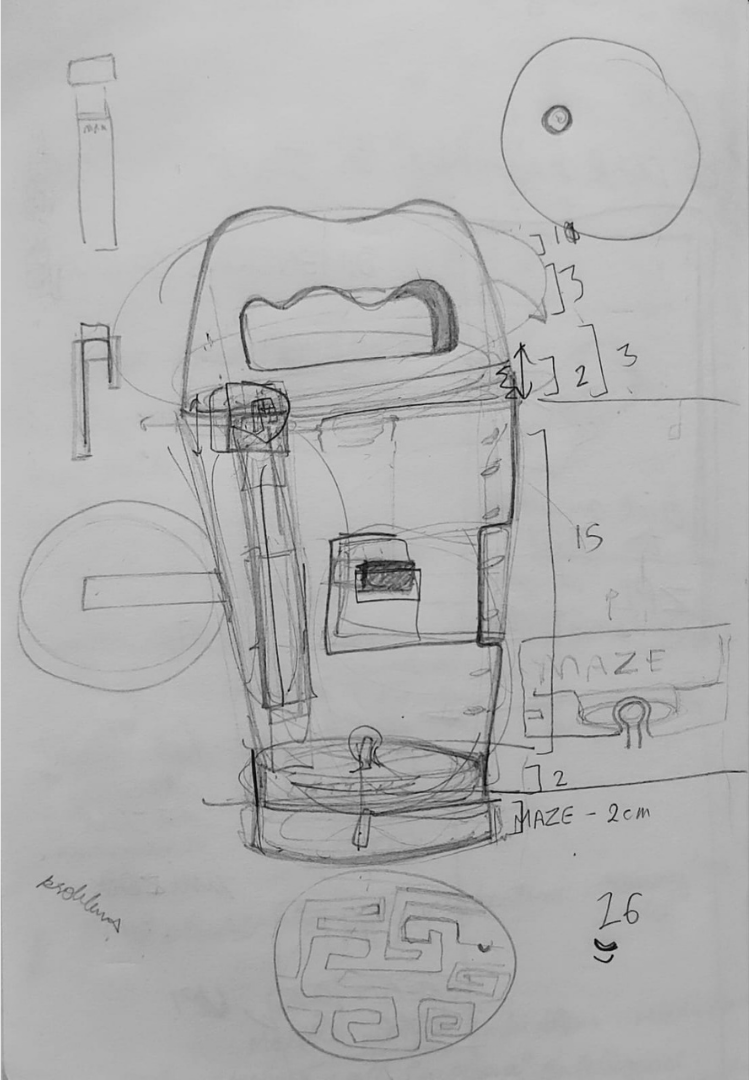 max
3
2
3
15
MAZE
2
MAZE - 2cm
problems
26